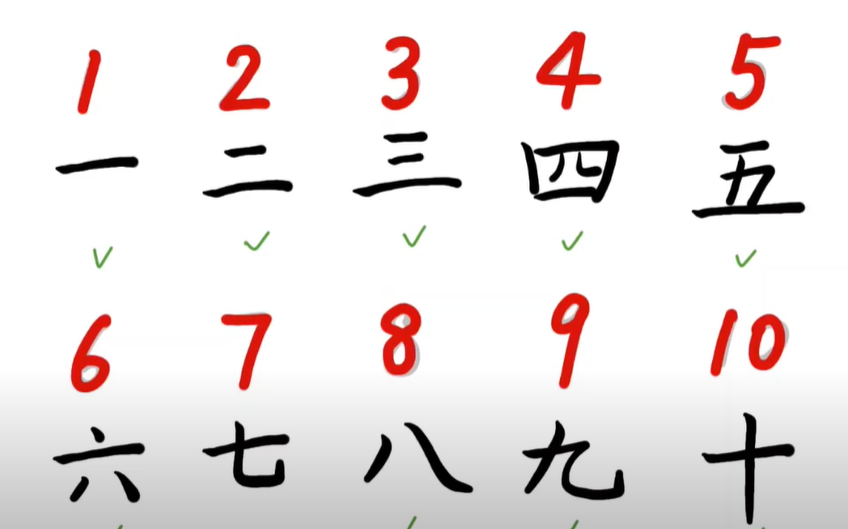 1 2 3 4 5
一 二 三 四 五
6 7 8 9 10
六 七 八 九 十